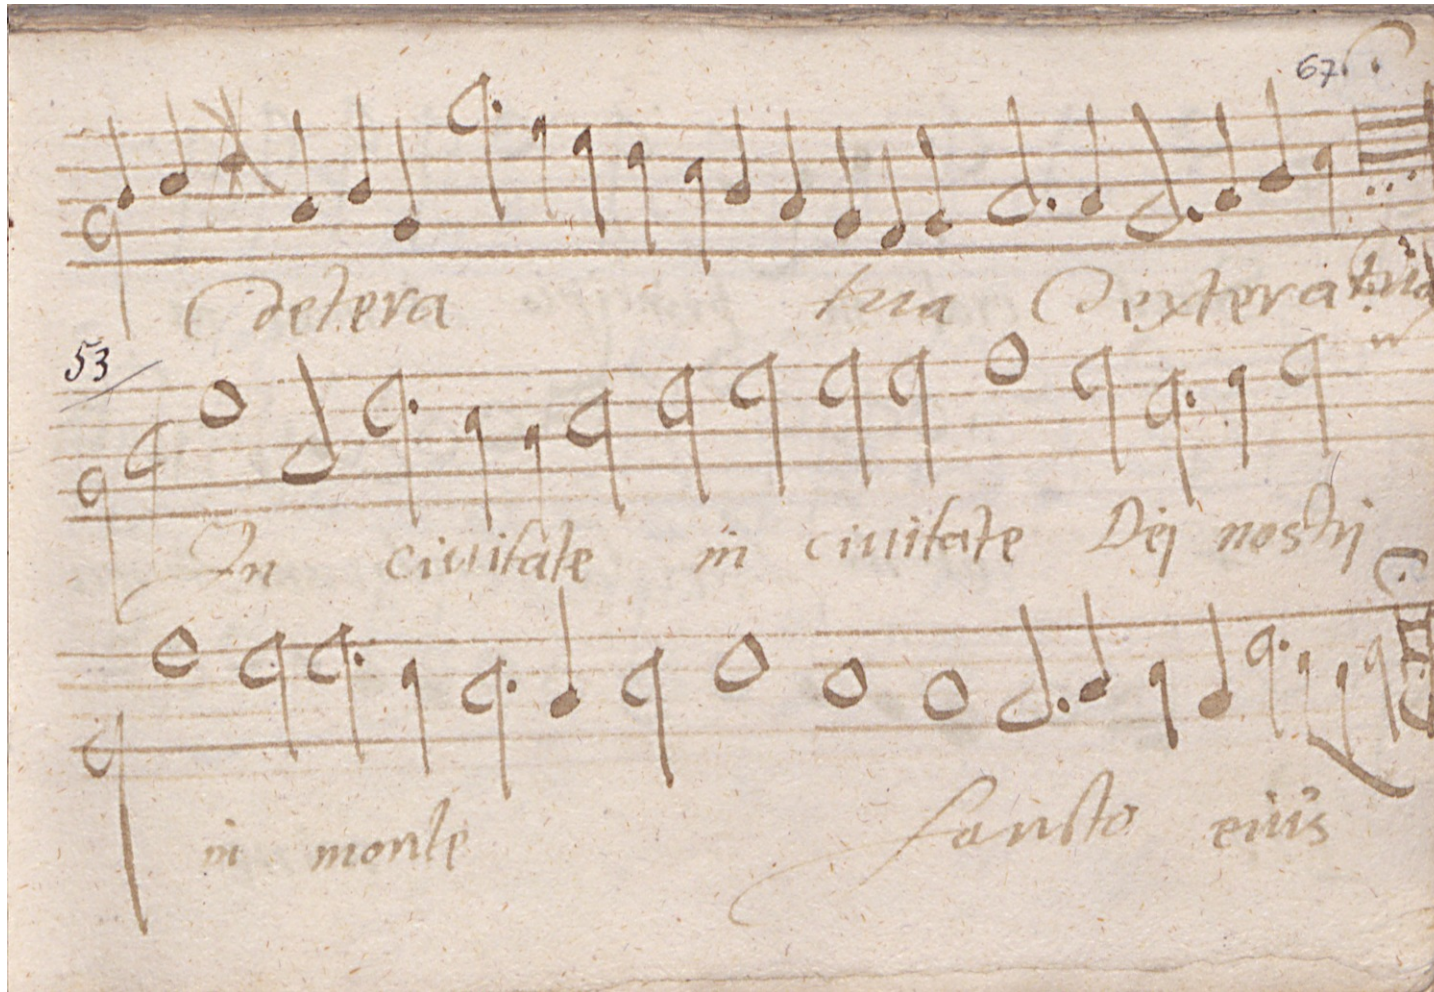 67
Detera tua Dextera tua
53
In ciuitate in ciuitate Dej nostrj
in monte sansto eius